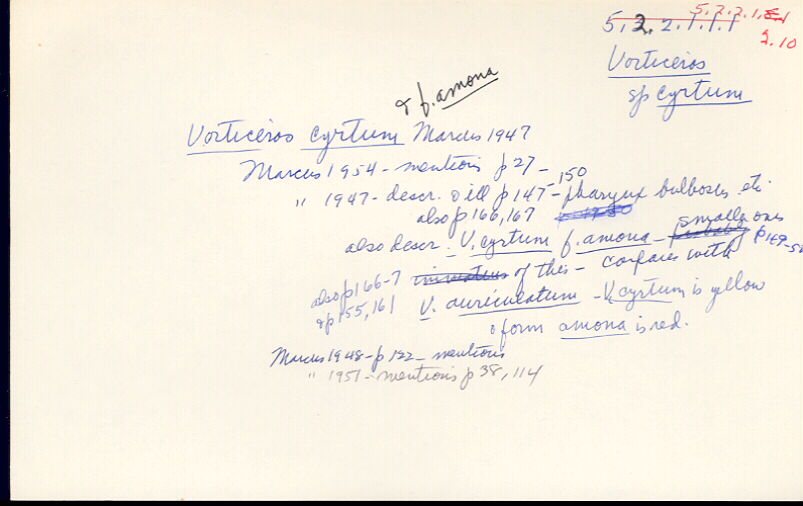 5.2.2.1.
2.10
5.2.2.1.1.1
Vorticeros
sp cyrtum
& f. amona
Vorticeros cyrtum Marcus 1947
Marcus 1954 - mentions p 27 -
" 1947 - descr. & ill p 147-150 - pharynx bulbosus etc
also p 166, 167
also descr - V. cyrtum f. amona - smaller ones p 149-50
also p 166-7 of this - compares with
& p 155, 161 V. auriculatum - V. cyrtum is yellow
& form amona is red.
Marcus 1948 - p 122 - mentions
" 1951 - mentions p 38, 114